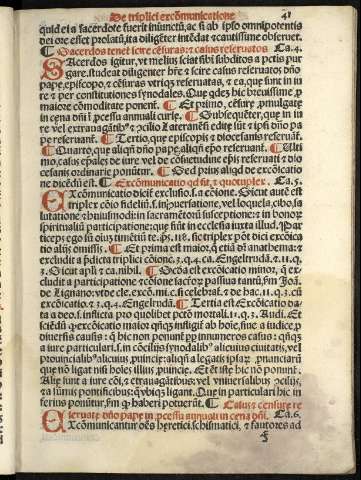 De triplici excōmunicatione 41
quid ei a sacerdote fuerit iniunctū, ac si ab ipso omnipotentis
dei ore esset prolatū, ita diligēter intēdat ⁊ cautissime obseruet.
¶ Sacerdos tenet̄ scire cēsuras: ⁊ casus reseruatos Ca.4.
SAcerdos igitur, vt melius sciat sibi subditos a pctis pur
gare, studeat diligenter hr̄e ⁊ scire casus reseruatos dño
pape, episcopo, ⁊ cēsuras vtriqȝ reseruatas, ⁊ ea, que sunt in iu
re ⁊ per constitutiones synodales. Que qdeȝ hic breuissime, p
maiore cōmoditate ponent̄. ¶ Et primo, cēsure, pmulgate
in cena dñi ī pcessu annuali curie. ¶ Subsequēter, que in iu
re vel extrauagātibꝰ ⁊ ꝯcilio Lateranēsi edite sūt ⁊ ipsi dño pa
pe reseruant̄. ¶ Tertio, que episcopis ⁊ diocesanis reseruāt̄.
¶ Quarto, que aliqñ dño pape, aliqñ epō reseruant̄. ¶ Ulti
mo, casus ep̄ales de iure, vel de cōsuetudine epis reseruati ⁊ dio
cesanis ordinarie ponūtur. ¶ Sed prius aliqd de excōicatio
ne dicēdū est. ¶ Excōmunicatio qd sit, ⁊ quotuplex. Ca.5.
EXcōmunicatio dicit̄ exclusio. s. a cōione. Sicut autē est
triplex cōio fideliū. s. in ꝯuersatione, vel loquela, cibo, sa
lutatione ⁊ huiusmodi: in sacramētorū susceptione: ⁊ in bonorū
spiritualiū participatione: que fiunt in ecclesia iuxta illud. Par
ticeps ego sū oiuꝫ timētiū te. ps. 118. sic triplex pōt dici excōica
tio aliis omissis. ¶ Et prima est maior, q̄ etiā dr̄ anathema: ⁊
excludit a p̄dicta triplici cōione, 3. q. 4. ca. Engeltrudā. ⁊ 11. q.
3. Sicut apl̄i ⁊ ca. nihil. ¶ Scd̄a est excōicatio minor, q̄ ex-
cludit a participatione ⁊ cōione sacr̄oꝝ passiua tantū, fm Joā.
de Lignano: vt de cle. excō. mi. c. si celebrat. ⁊ de hac. 11. q. 3. cū
excōicato. ⁊ 3. q. 4. Engeltrudā. ¶ Tertia est excōicatio da-
ta a deo. s. inflicta pro quolibet pctō mortali. 11. q. 3. Audi. Et
sciēdū ꝙ excōicatio maior qñqȝ infligit̄ ab hoīe, siue a iudice, p
diuersis causis: q̄ hic non ponunt̄ pp innumeros casus: qñqȝ
a iure particulari. s. in cōciliis synodalibꝰ alicuius ciuitatis, vel
prouincialibꝰ alicuius, puincie: aliqñ a legatis ipsaꝝ puinciarū
que nō ligat nisi hoīes illius, puincie. Et de istis hic nō ponunt̄.
Aliq̄ sunt a iure cōi, ⁊ extrauagātibus: vel vniuersalibus ꝯciliis,
⁊ a sumis pontificibus: q̄ vbiqȝ ligant. Que in particulari hic in
ferius ponūtur, fm ꝙ haberi potuerūt. ¶ Casus ⁊ censure re
seruate dño pape in pcessu annuali in cena dñi. Ca.6.
EXcōmunicantur oēs heretici, schismatici, ⁊ fautores ad
f